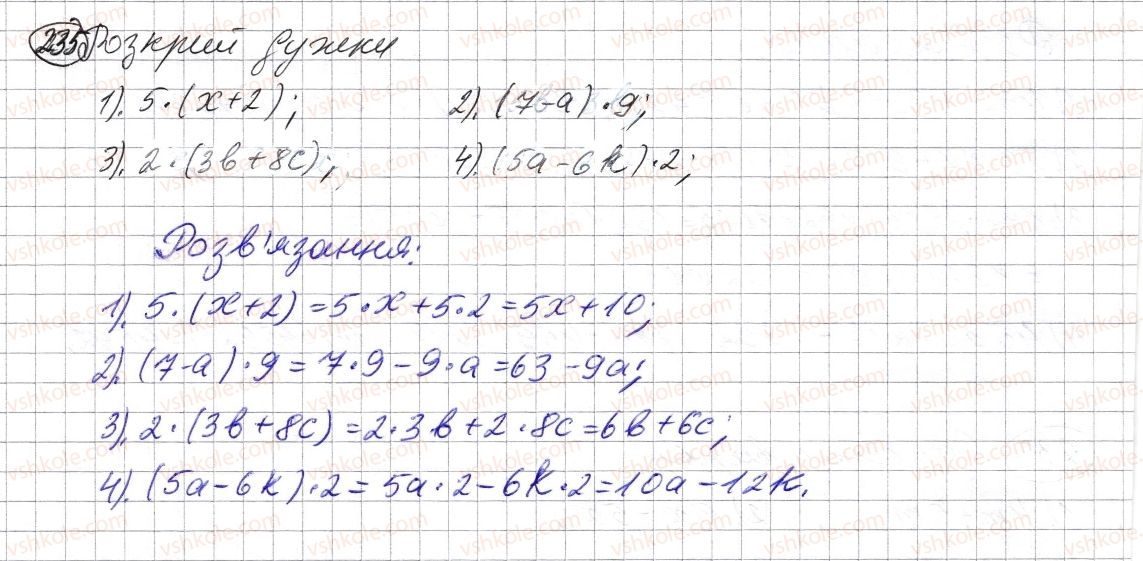 235 Розкрий дужки
1). 5·(x+2); 2). (7-a)·9;
3). 2·(3b+8c); 4). (5a-6k)·2;
Розв'язання:
1). 5·(x+2)=5·x+5·2=5x+10;
2). (7-a)·9=7·9-9·a=63-9a;
3). 2·(3b+8c)=2·3b+2·8c=6b+6c;
4). (5a-6k)·2=5a·2-6k·2=10a-12k.